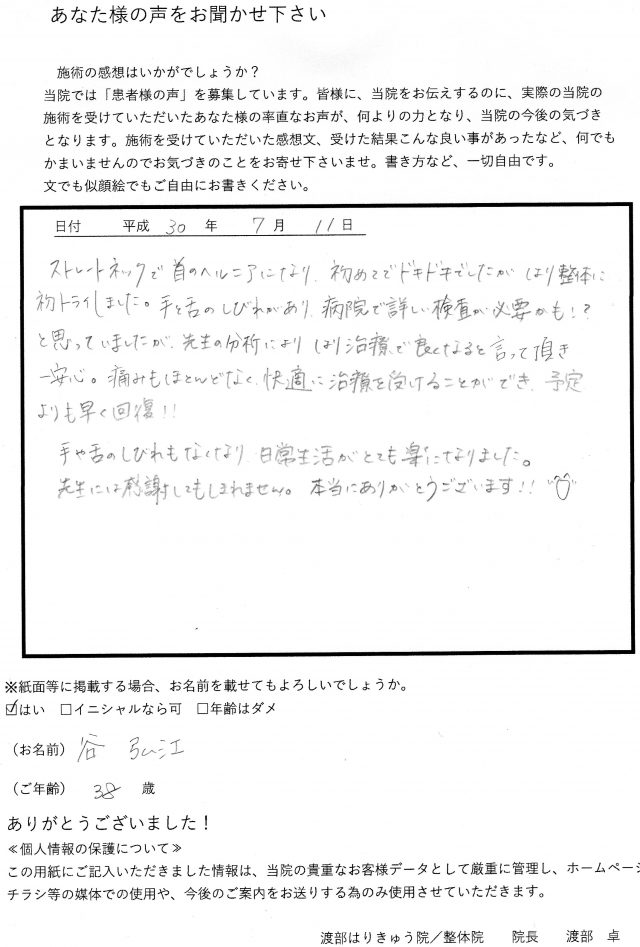 あなた様の声をお聞かせ下さい
施術の感想はいかがでしょうか？
当院では「患者様の声」を募集しています。皆様に、当院をお伝えするのに、実際の当院の
施術を受けていただいたあなた様の率直なお声が、何よりの力となり、当院の今後の気づき
となります。施術を受けていただいた感想文、受けた結果こんな良い事があったなど、何でも
かまいませんのでお気づきのことをお寄せ下さいませ。書き方など、一切自由です。
文でも似顔絵でもご自由にお書きください。
日付 平成 30 年 7 月 11 日
ストレートネックで首のヘルニアになり、初めてでドキドキでしたが はり整体に
初トライしました。手と舌のしびれがあり、病院で詳しい検査が必要かも！？
と思っていましたが、先生の分析により はり治療で良くなると言って頂き
一安心。痛みもほとんどなく、快適に治療を受けることができ、予定
よりも早く回復！！
手や舌のしびれもなくなり、日常生活がとても楽になりました。
先生には感謝してもしきれません。本当にありがとうございます！！
※紙面等に掲載する場合、お名前を載せてもよろしいでしょうか。
☑はい □イニシャルなら可 □年齢はダメ
（お名前） 谷 弘江
（ご年齢） 38 歳
ありがとうございました！
≪個人情報の保護について≫
この用紙にご記入いただきました情報は、当院の貴重なお客様データとして厳重に管理し、ホームページ
チラシ等の媒体での使用や、今後のご案内をお送りする為のみ使用させていただきます。
渡部はりきゅう院／整体院 院長 渡部 卓